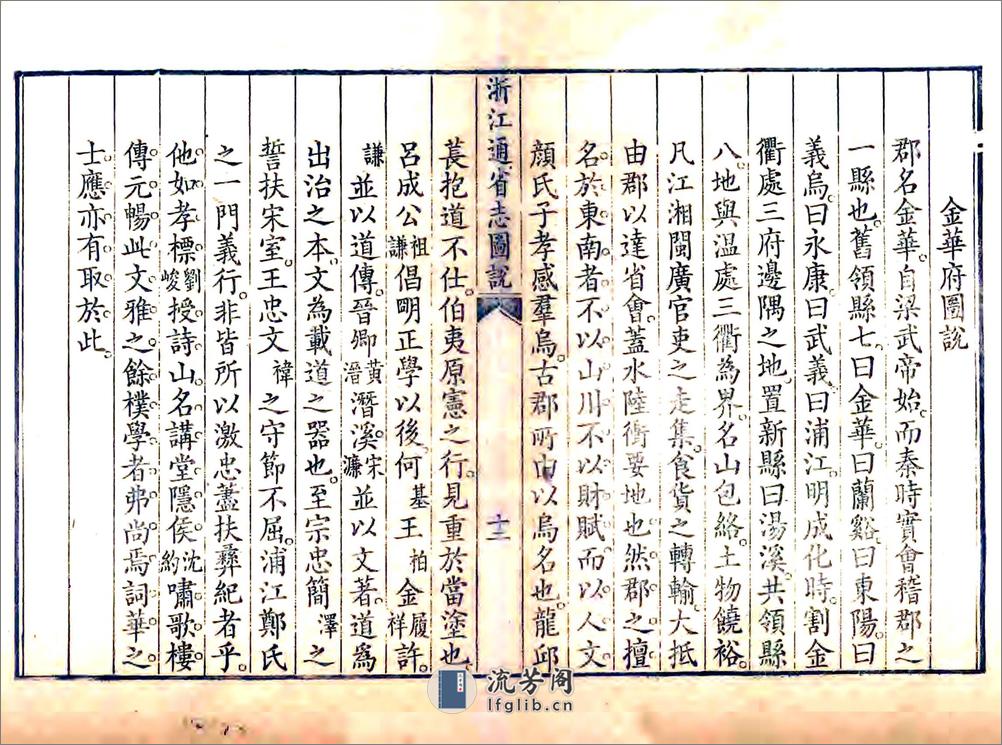 金華府圖說
郡名金華自梁武帝始而秦時實會稽郡之
一縣也舊領縣七曰金華曰蘭谿曰東陽曰
義烏曰永康曰武義曰浦江明成化時割金
衢處三府邊隅之地置新縣曰湯溪共領縣
八地與温處三衢為界名山包絡土物饒裕
凡江湘閩廣官吏之走集食貨之轉輸大抵
由郡以達省會蓋水陸衝要地也然郡之擅
名於東南者不以山川不以財賦而以人文
顔氏子孝感羣烏古郡所由以烏名也龍邱
浙江通省志圖說
十三
萇抱道不仕伯夷原憲之行見重於當塗也
呂成公祖謙倡明正學以後何基王柏金履祥許
謙並以道傳晉卿黃溍潛溪宋濂並以文著道為
出治之本文為載道之器也至宗忠簡澤之
誓扶宋室王忠文褘之守節不屈浦江鄭氏
之一門義行非皆所以激忠藎扶彞紀者乎
他如孝標劉峻授詩山名講堂隱侯沈約嘯歌樓
傳元暢此文雅之餘樸學者弗尚焉詞華之
士應亦有取於此
流芳阁
lfglib.cn